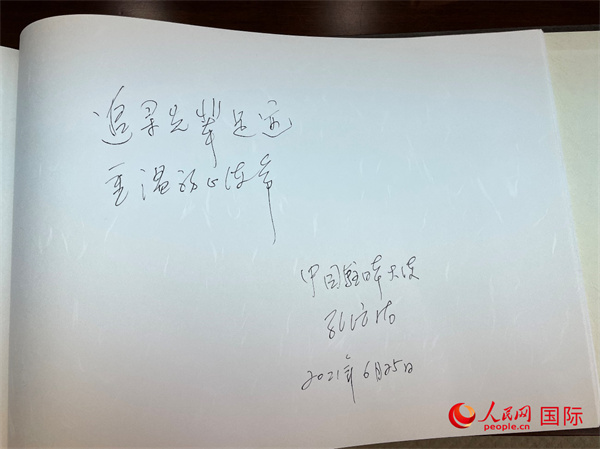 追寻先辈足迹
重温初心使命
中国驻日本大使
孔铉佑
2021年6月25日
人民网 国际
people.cn